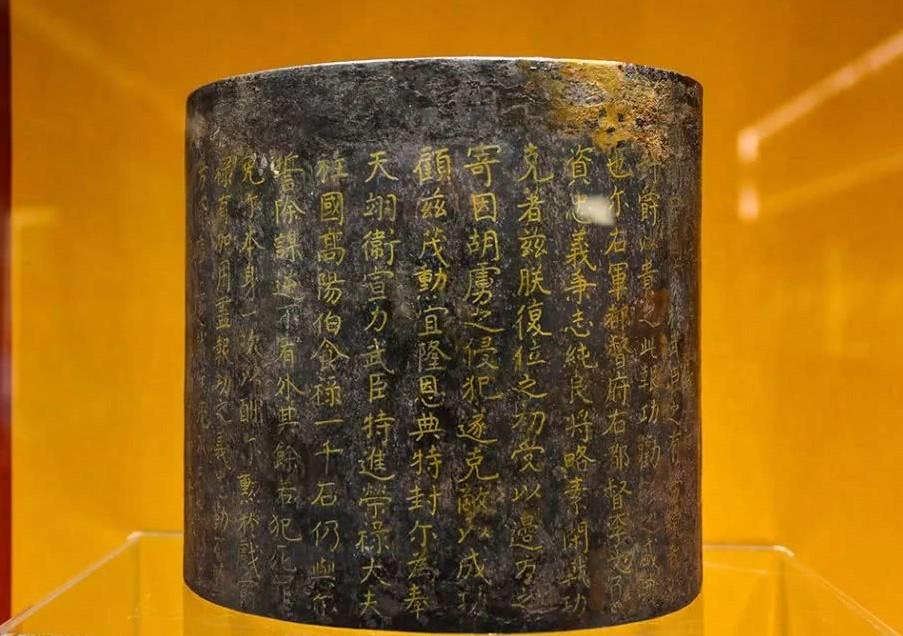 爵以 之此報功勸
也尔右軍都督府右都督李文
資忠義秉志純良將略素閑武功
克著兹朕復位之初受以邊方之
寄因胡虜之侵犯遂克敵以成功
顧兹茂勲宜隆恩典特封尔為奉
天翊衛宣力武臣特進榮禄大夫
柱國髙陽伯食禄一千石仍與尔
誓除謀逆不宥外其餘若犯死
免尔本身一次以酬尔勲於戲爵
禄有加用盡報功之義